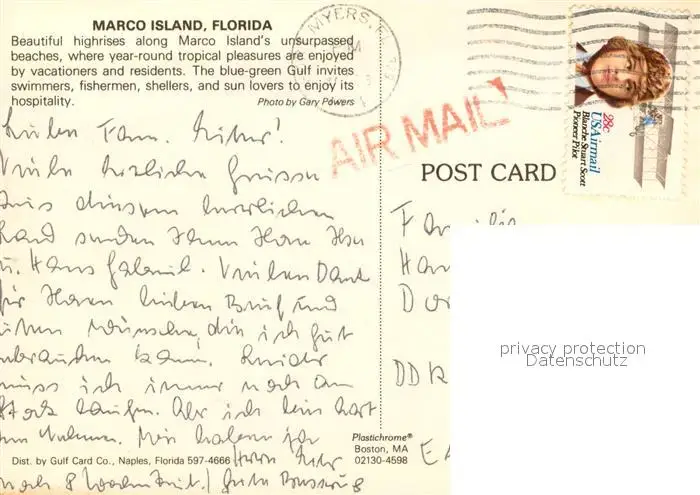 MARCO ISLAND, FLORIDA
Beautiful highrises along Marco Island's unsurpassed
beaches, where year-round tropical pleasures are enjoyed
by vacationers and residents. The blue-green Gulf invites
swimmers, fishermen, shellers, and sun lovers to enjoy its
hospitality.
Photo by Gary Powers
MYERS, F
PM
AIR MAIL
28c
USAirmail
Blanche Stuart Scott
Pioneer Pilot
POST CARD
Fam.
Viele herzliche Grüsse
Aus diesem herrlichen
Land senden Ihnen
u. Hans Gabriel. Vielen Dank
für Ihren lieben Brief und
Wünsche, die ich gut
brauchen kann. Leider
muss ich immer noch am
Stock laufen. Aber ich bin hart
im Nehmen. Wir haben ja
noch 8
Familie
Ha
Do
DDR
privacy protection
Datenschutz
Plastichrome®
Boston, MA
02130-4598
Dist. by Gulf Card Co., Naples, Florida 597-4666